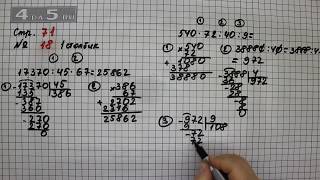 4 ДЗ.RU
Стр. 71
№ 18 1 столбик
① ②
17370:45·67=25862
① 17370 | 45
135 | 386
387
360
270
270
0
② × 386
67
2702
2316
25862
① ② ③
540·72:40:9=
① × 540
72
1080
378
38880
② 38880:40=3888:4
= 972
3888 | 4
36 | 972
28
28
8
8
0
③ 972 | 9
9 | 108
72
72